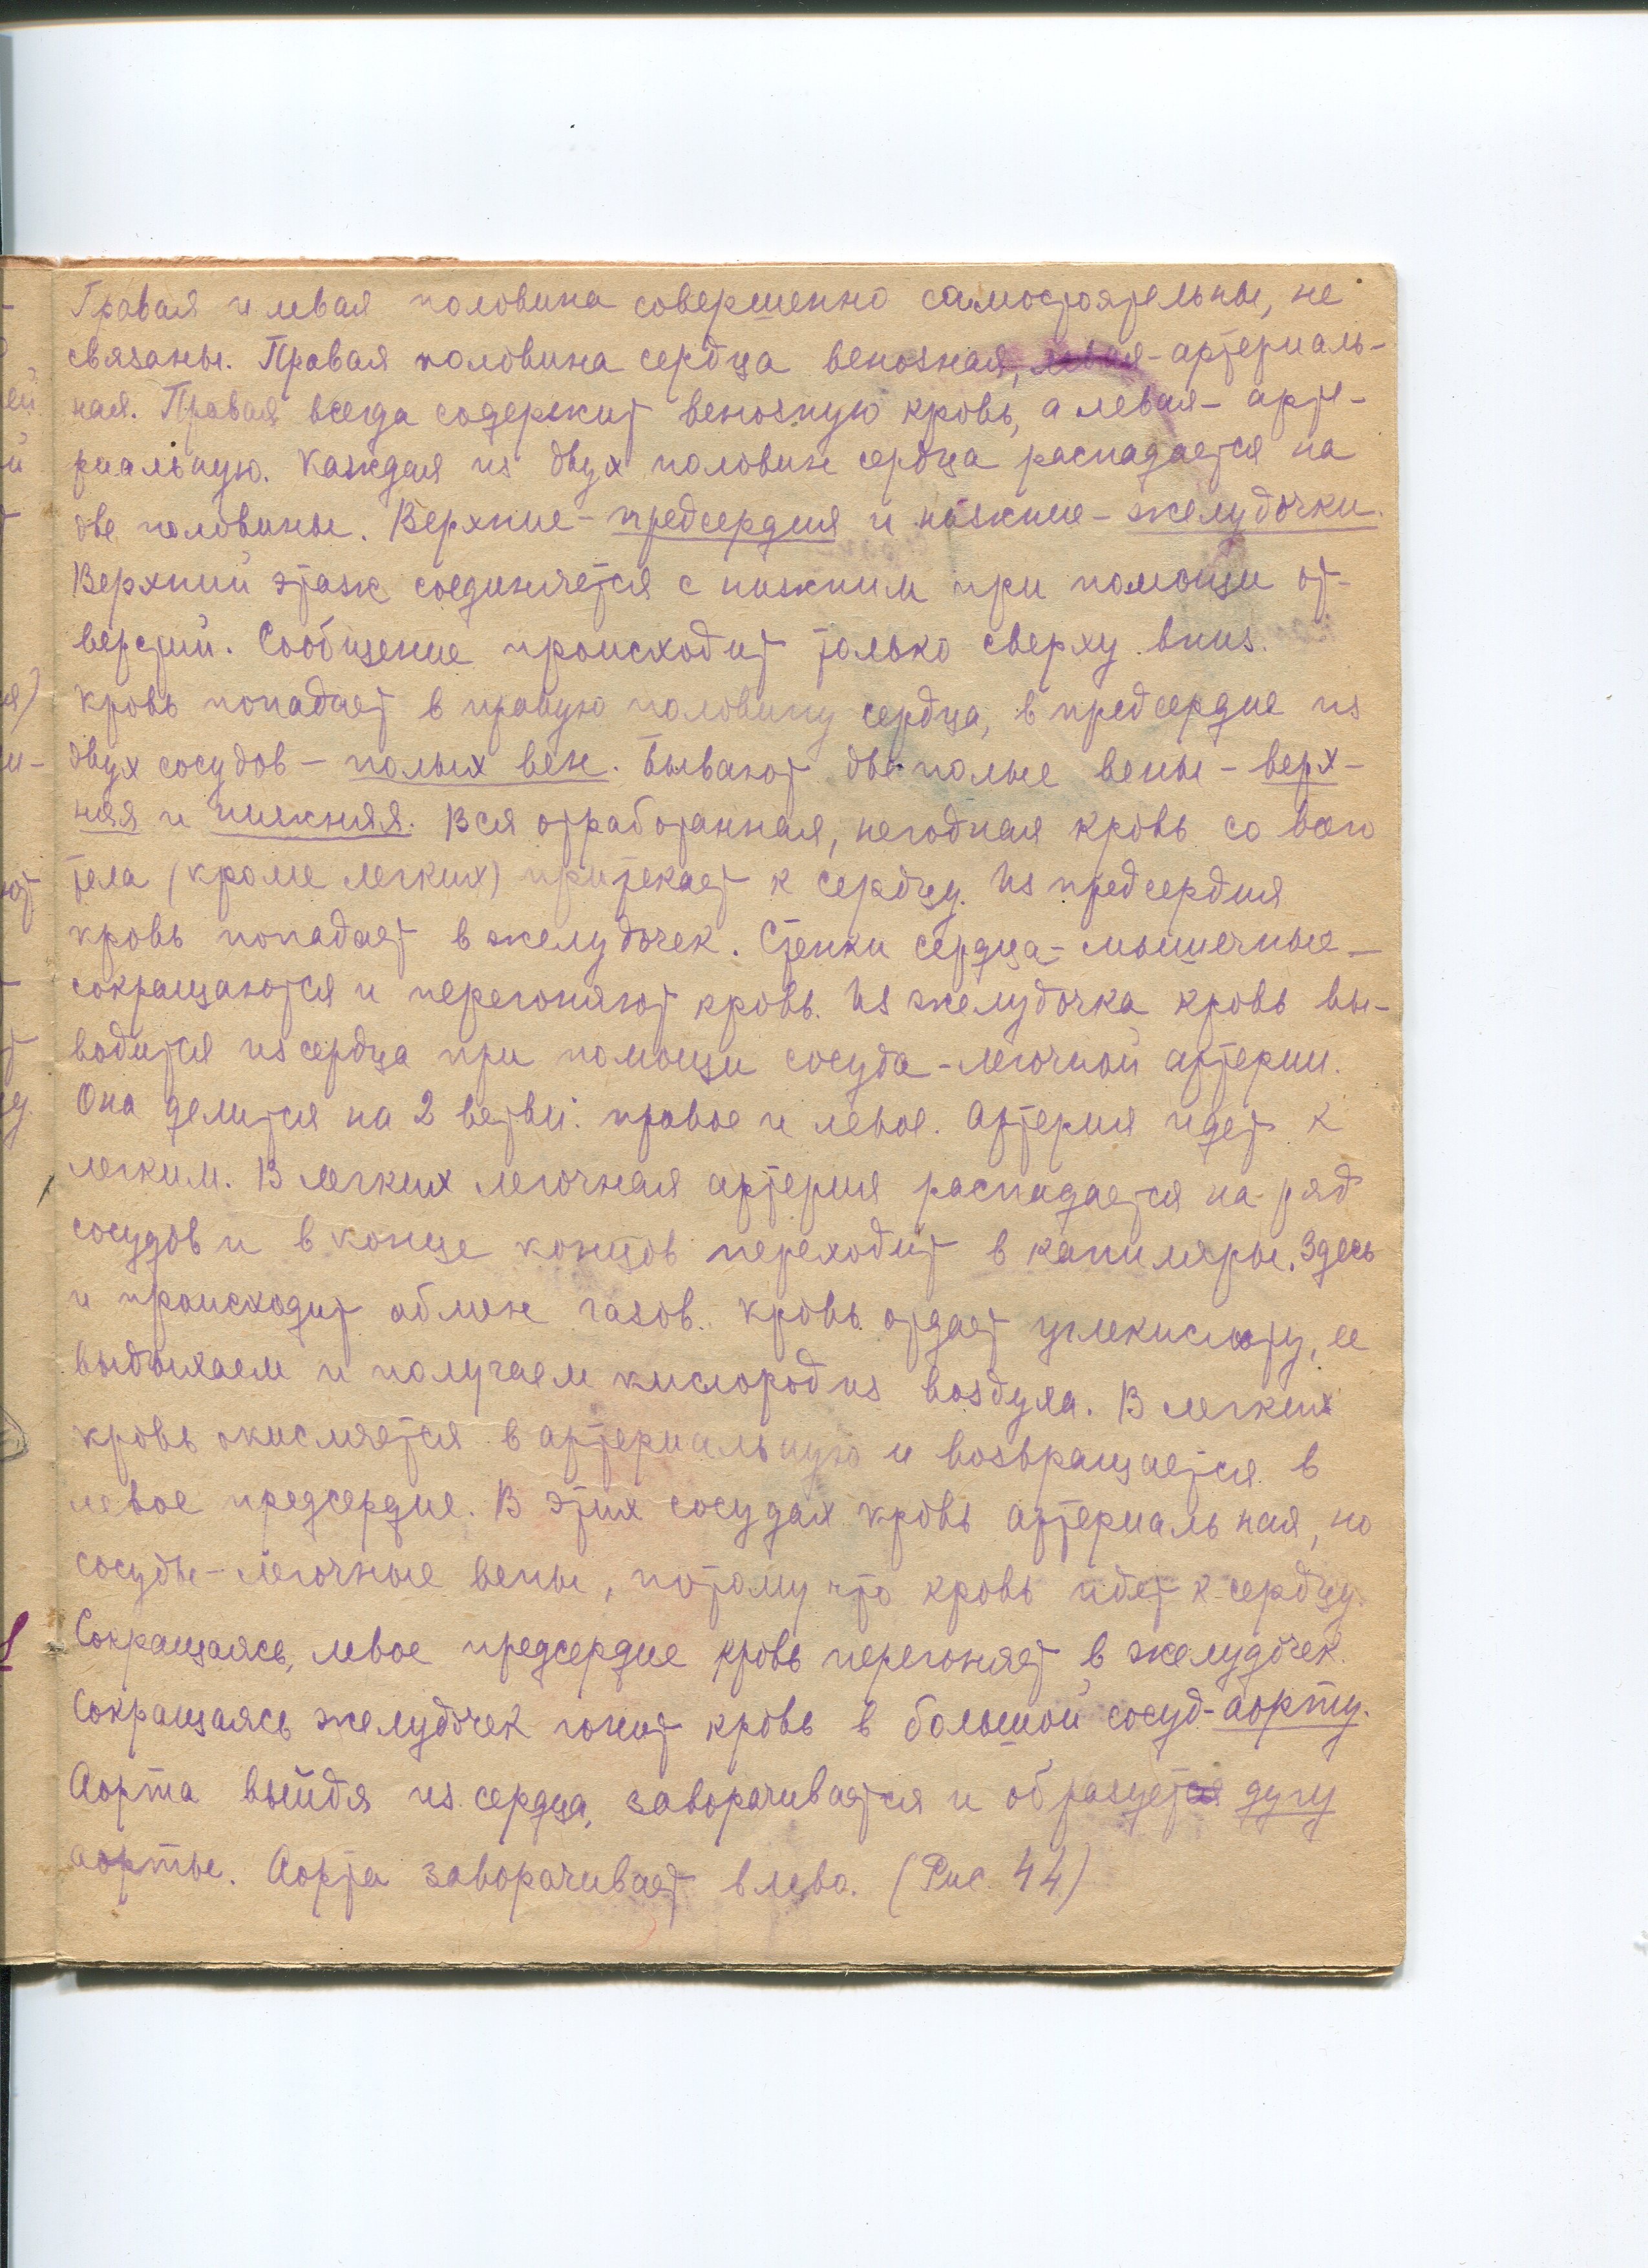 Правая и левая половина совершенно самостоятельны, не
связаны. Правая половина сердца венозная, левая - артериаль-
ная. Правая всегда содержит венозную кровь, а левая - арте-
риальную. Каждая из двух половин сердца распадается на
две половины. Верхние - предсердия и нижние - желудочки.
Верхний этаж соединяется с нижним при помощи от-
верстий. Сообщение происходит только сверху вниз.
Кровь попадает в правую половину сердца, в предсердие из
двух сосудов - полых вен. Бывают две полые вены - верх-
няя и нижняя. Вся отработанная, негодная кровь со всего
тела (кроме легких) притекает к сердцу. Из предсердия
кровь попадает в желудочек. Стенки сердца - мышечные -
сокращаются и перегоняют кровь. Из желудочка кровь вы-
водится из сердца при помощи сосуда - легочной артерии.
Она делится на 2 ветви: правое и левое. Артерия идет к
легким. В легких легочная артерия распадается на ряд
сосудов и в конце концов переходит в капиляры. Здесь
и происходит обмен газов. Кровь отдает углекислоту, ее
выдыхаем и получаем кислород из воздуха. В легких
кровь окисляется в артериальную и возвращается в
левое предсердие. В этих сосудах кровь артериальная, но
сосуды - легочные вены, потому что кровь идет к сердцу.
Сокращаясь, левое предсердие кровь перегоняет в желудочек.
Сокращаясь желудочек гонит кровь в большой сосуд - аорту.
Аорта выйдя из сердца, заворачивается и образует дугу
аорты. Аорта заворачивает влево. (Рис. 44)